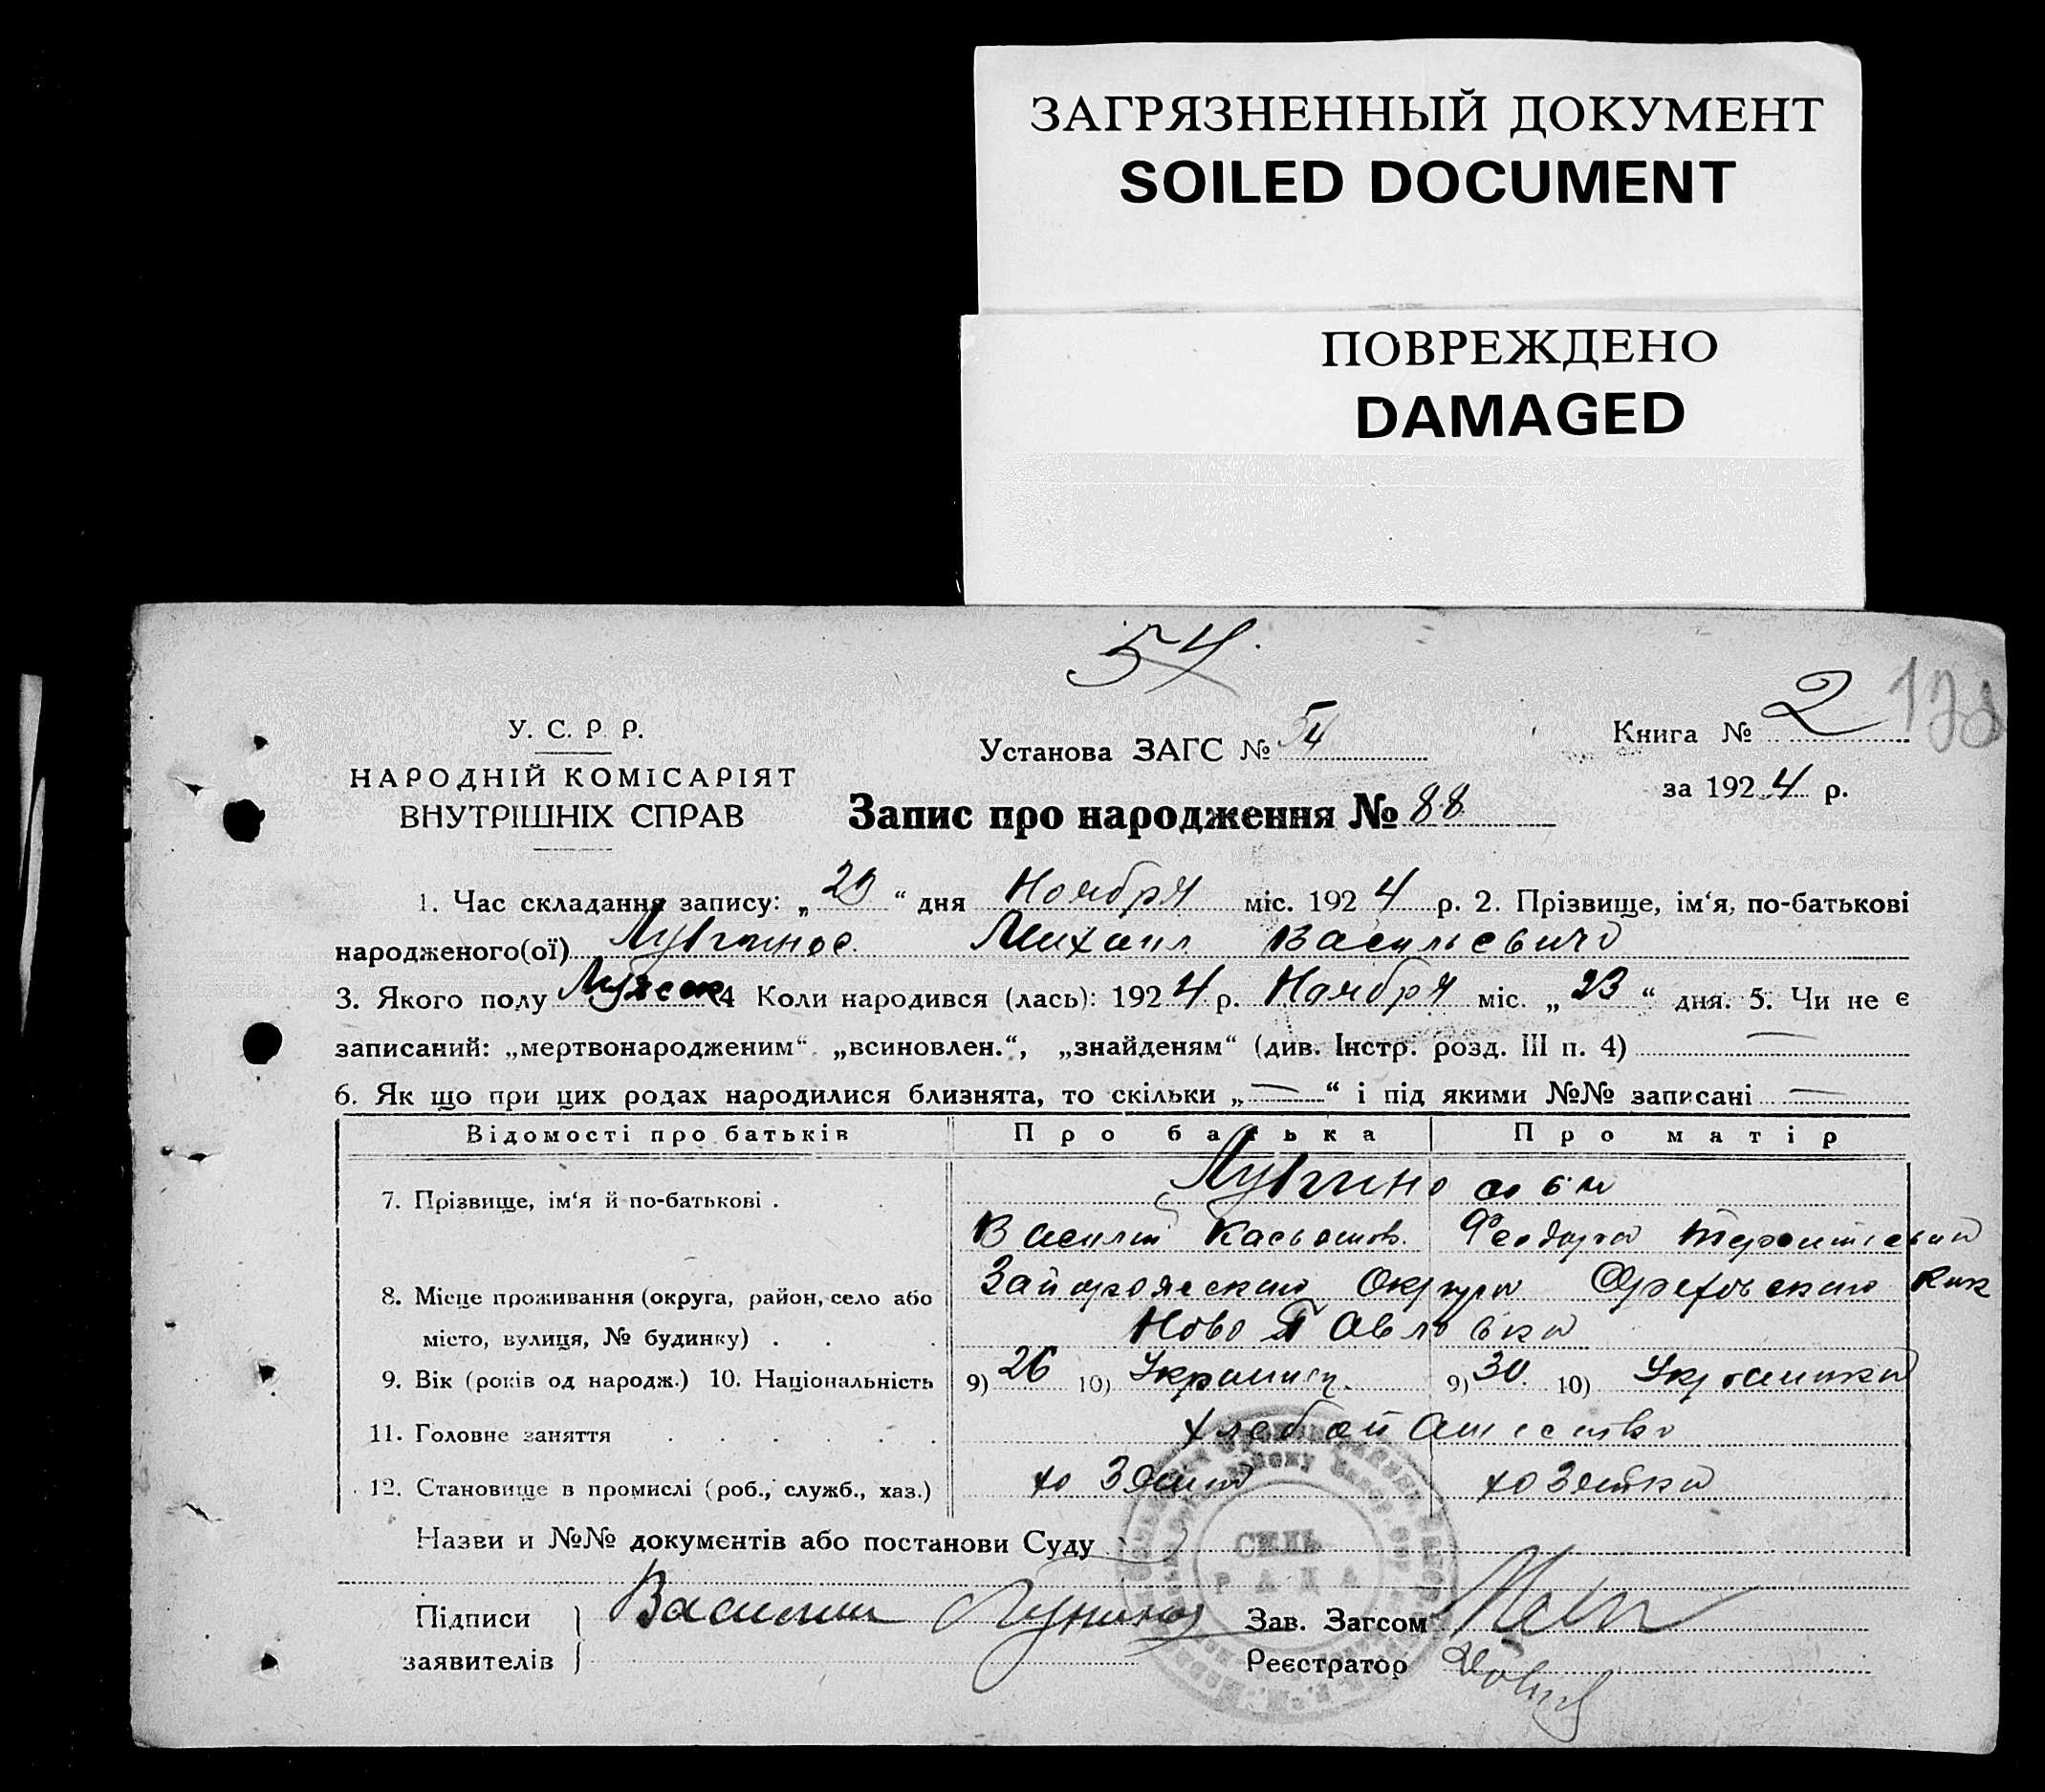 ЗАГРЯЗНЕННЫЙ ДОКУМЕНТ
SOILED DOCUMENT
ПОВРЕЖДЕНО
DAMAGED
54.
У. С. Р. Р.
НАРОДНІЙ КОМІСАРІЯТ
ВНУТРІШНІХ СПРАВ
Установа ЗАГС № 54
Книга № 2
за 1924 р.
Запис про народження № 88
1. Час складання запису: „23“ дня Ноября міс. 1924 р. 2. Прізвище, ім‘я, по-батькові
народженого(ої) Михаил Васильевич
3. Якого полу Мужск 4 Коли народився (лась): 1924 р. Ноября міс. „23“ дня. 5. Чи не є
записаний: „мертвонародженим“ „всиновлен.“, „знайденям“ (див. Інстр. розд. III п. 4) —
6. Як що при цих родах народилися близнята, то скільки „—“ і під якими №№ записані —
Відомості про батьків Про батька Про матір
7. Прізвище, ім‘я й по-батькові .
Василий Касьянов. Феодора
8. Місце проживання (округа, район, село або Запорожского Округа Ореховского
місто, вулиця, № будинку) . . . Ново Павловка
9. Вік (років од народж.) 10. Національність 9) 26 10) Украинец. 9) 30. 10) Украинка
11. Головне заняття . . . . . . хлебопашество
12. Становище в промислі (роб., служб., хаз.) хозяин хозяйка
Назви и №№ документів або постанови Суду
СІЛЬ
РАДА
Підписи Василий Зав. Загсом
заявителів Реєстратор